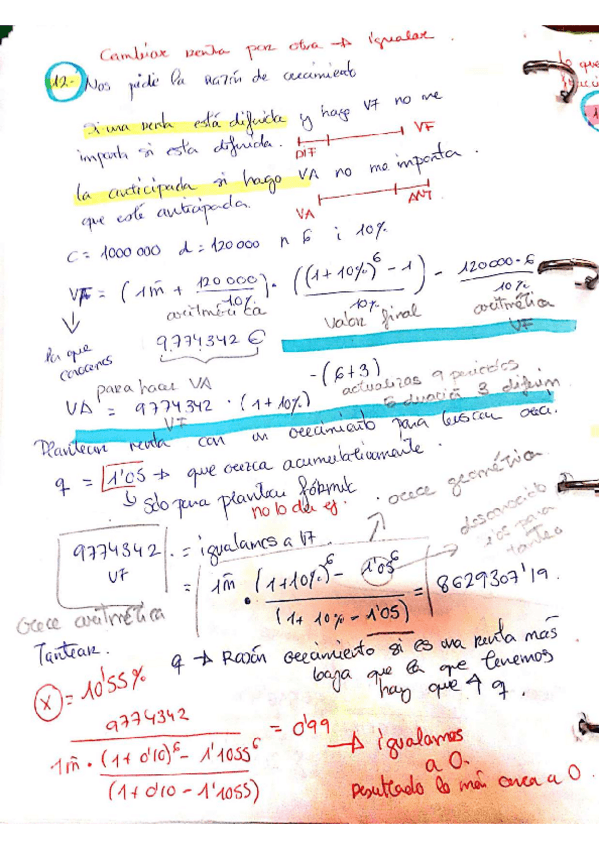 Cambiar renta por otra → igualar.
12.- Nos pide la razón de crecimiento
lo que
Si una renta está diferida y hago VF no me
importa si esta diferida.
DIF
VF
la anticipada si hago VA no me importa.
que esté anticipada.
VA
ANT
C = 1000 000 d = 120 000 n 6 i 10%
VF = (1m̄ + 120 000 / 10%) · ((1+10%)^6 - 1) / 10% - 120000·6 / 10%
aritmética
valor final
aritmética
VF
la que
conocemos
9.774342 €
para hacer VA
-(6+3)
actualizas 9 periodos
6 duración 3 diferim
VA = 9774342 · (1+10%)
VF
Plantean renta con un crecimiento para buscar
q = 1'05 → que crezca acumulativamente.
↳ Solo para plantear fórmula
no lo da ej.
crece geométrica.
desconocido
1'05 para
tanteo
9774342 = igualamos a VF
VF
= 1m̄ · (1+10%)^6 - 1'05^6 / (1+10% - 1'05) = 8629307'19
crece aritmética
Tantear.
q → Razón crecimiento si es una renta más
baja que la que tenemos
hay que ↑ q.
x = 10'55%
9774342 / 1m̄ · (1+0'10)^6 - 1'1055^6 / (1+0'10 - 1'1055) = 0'99
→ igualamos
a 0.
Resultado lo más cerca a 0.